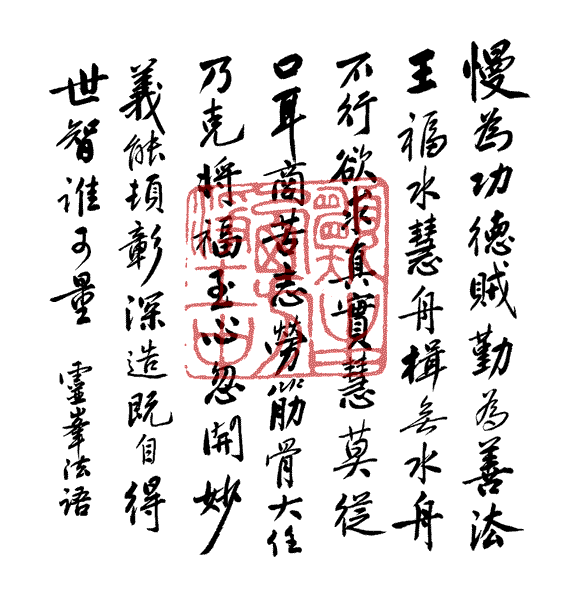 慢為功德賊勤為善法
王福水慧舟楫無水舟
不行欲求真實慧莫從
口耳商苦志勞筋骨大任
乃克将福至心忽開妙
義能頓彰深造既自得
世智谁可量
靈峯法语